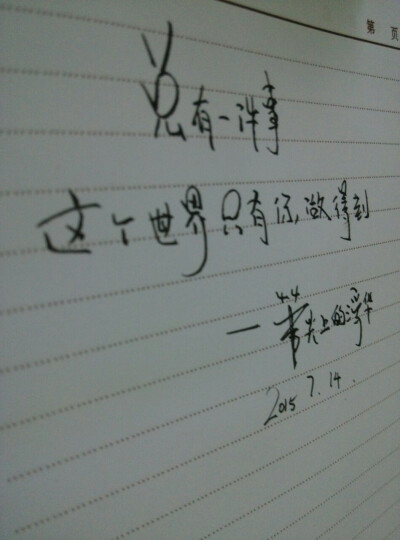 第 页
总有一件事
这个世界只有你,做得到
一笔尖上的浮华
2015 7.14.